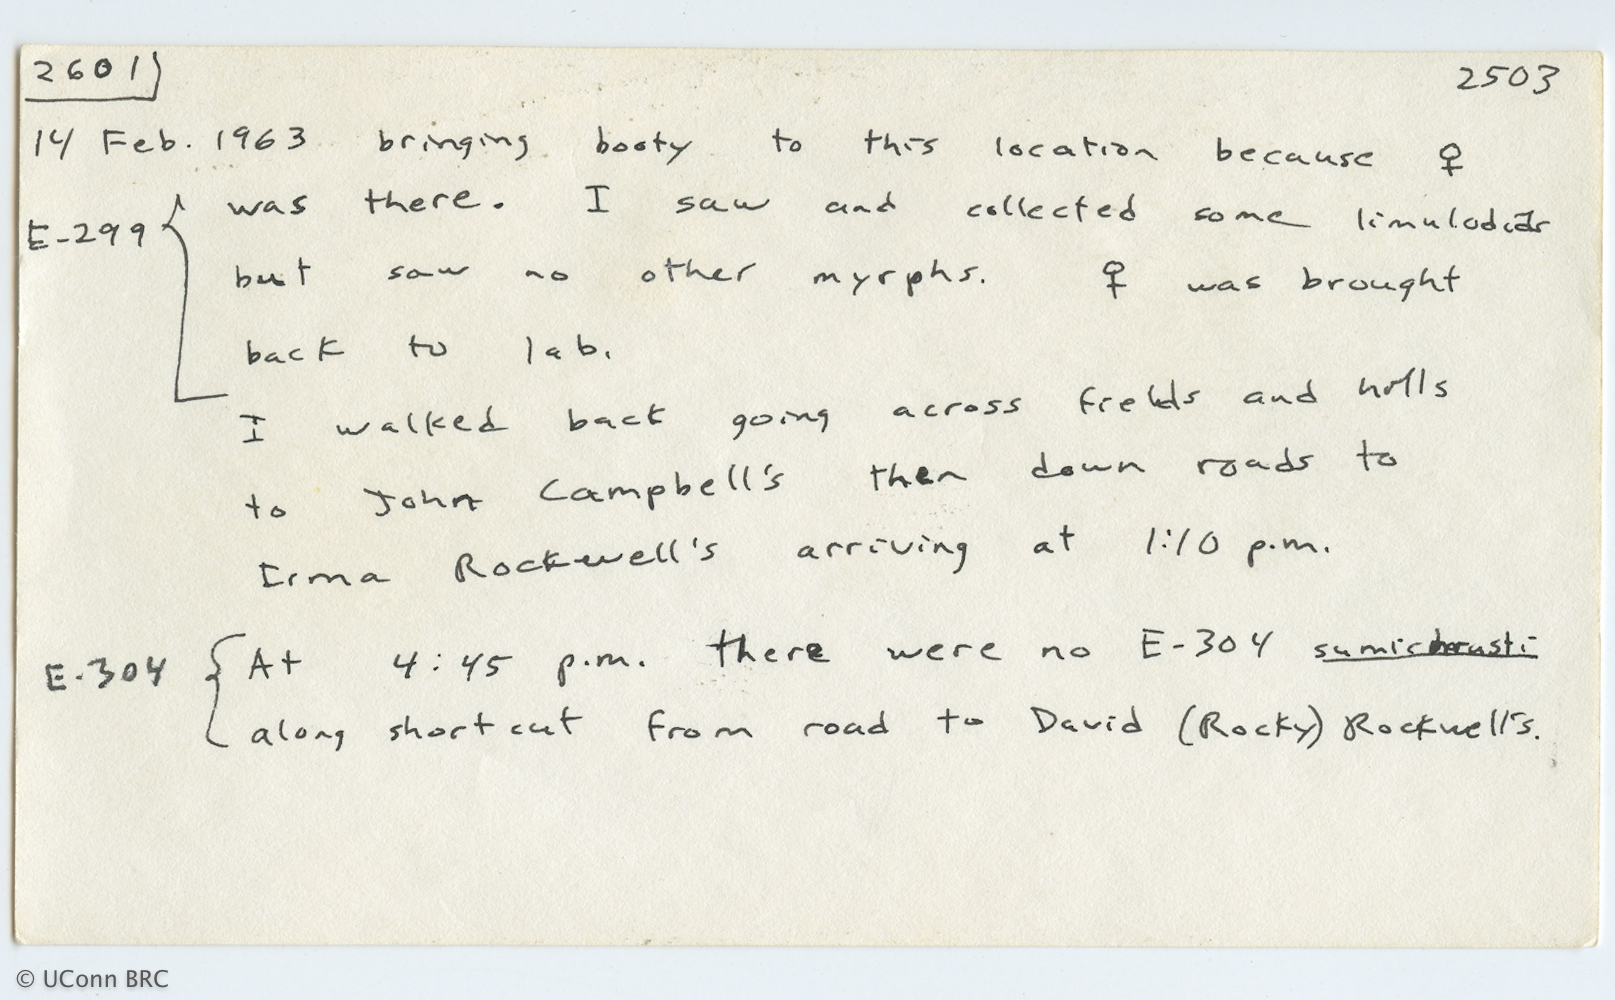 2601 2503
14 Feb. 1963 bringing booty to this location because ♀
E-299 was there. I saw and collected some limulodids
but saw no other myrphs. ♀ was brought
back to lab.
I walked back going across fields and hills
to John Campbell's then down roads to
Irma Rockwell's arriving at 1:10 p.m.
E-304 At 4:45 p.m. there were no E-304 sumichrasti
along shortcut from road to David (Rocky) Rockwell's.
© UConn BRC